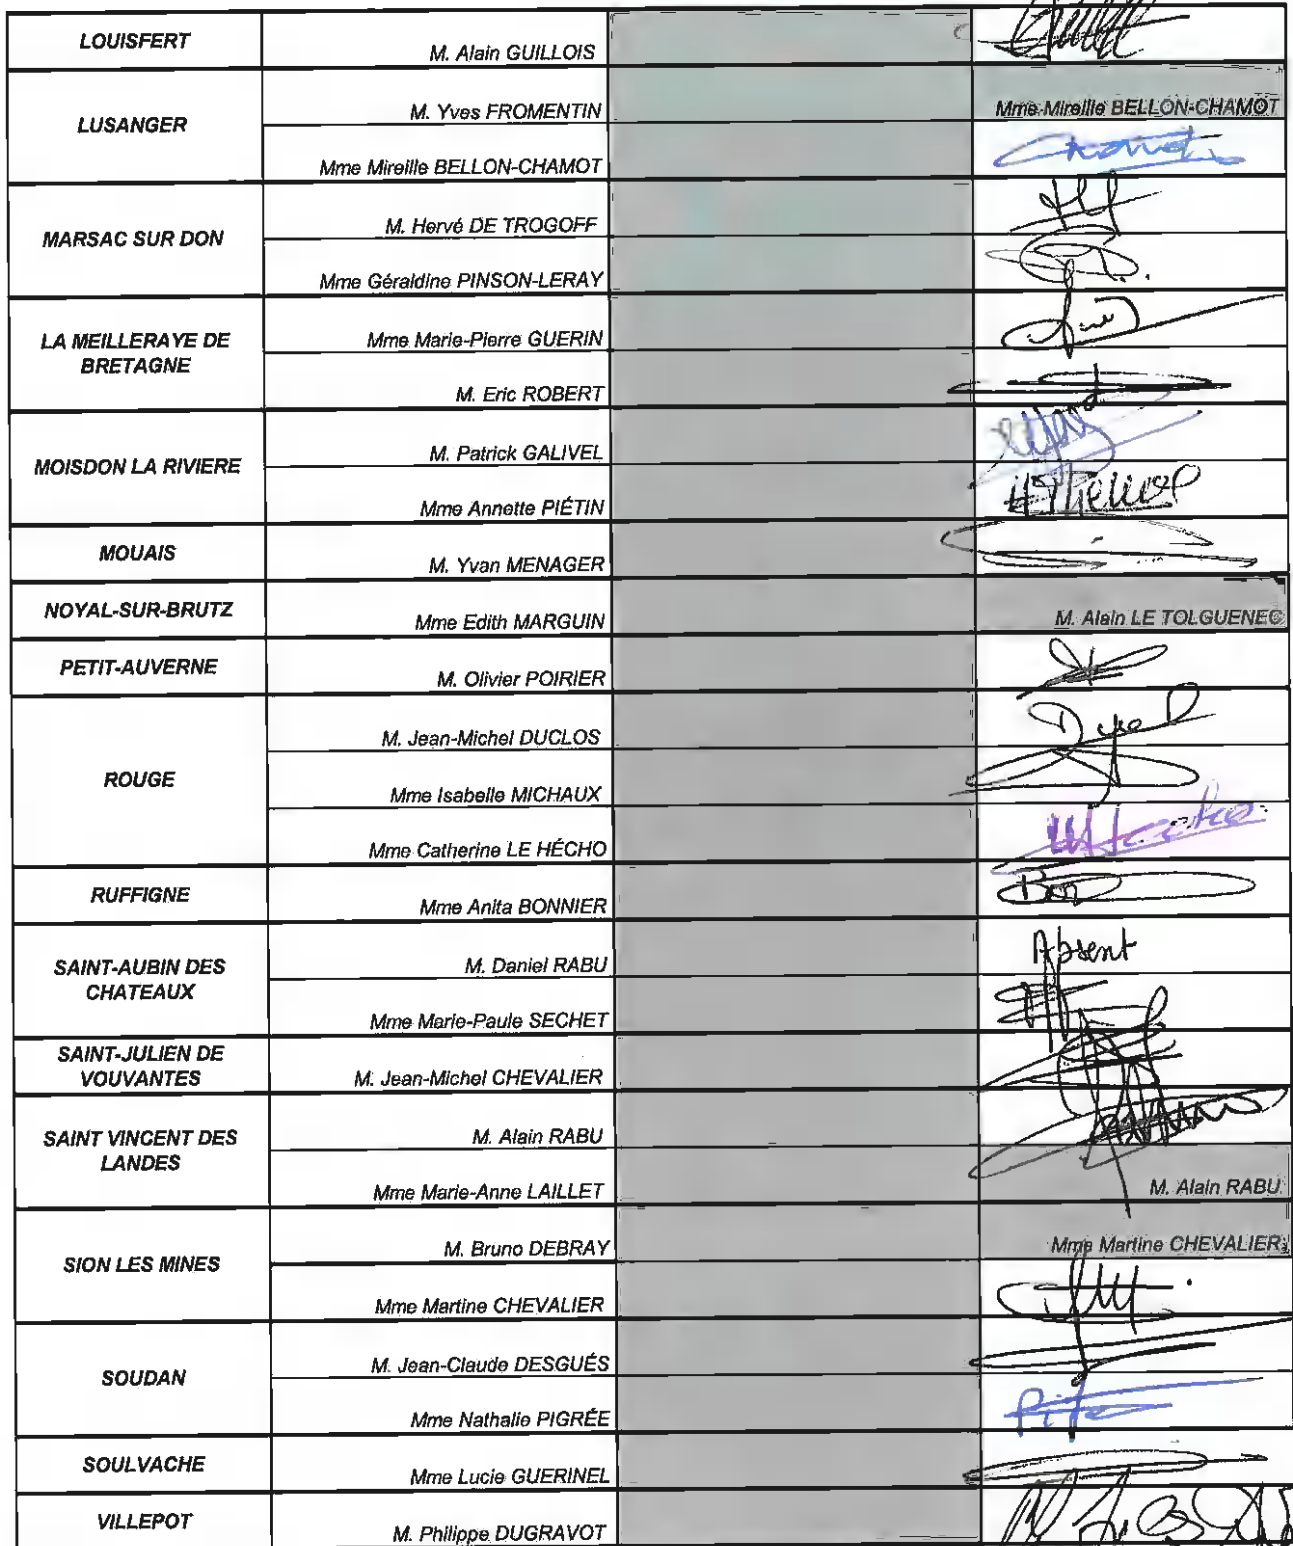 LOUISFERT
M. Alain GUILLOIS
LUSANGER
M. Yves FROMENTIN
Mme Mireille BELLON-CHAMOT
Mme Mireille BELLON-CHAMOT
MARSAC SUR DON
M. Hervé DE TROGOFF
Mme Géraldine PINSON-LERAY
LA MEILLERAYE DE
BRETAGNE
Mme Marie-Pierre GUERIN
M. Eric ROBERT
MOISDON LA RIVIERE
M. Patrick GALIVEL
Mme Annette PIÉTIN
MOUAIS
M. Yvan MENAGER
NOYAL-SUR-BRUTZ
Mme Edith MARGUIN
M. Alain LE TOLGUENEC
PETIT-AUVERNE
M. Olivier POIRIER
ROUGE
M. Jean-Michel DUCLOS
Mme Isabelle MICHAUX
Mme Catherine LE HÉCHO
RUFFIGNE
Mme Anita BONNIER
SAINT-AUBIN DES
CHATEAUX
M. Daniel RABU
Absent
Mme Marie-Paule SECHET
SAINT-JULIEN DE
VOUVANTES
M. Jean-Michel CHEVALIER
SAINT VINCENT DES
LANDES
M. Alain RABU
Mme Marie-Anne LAILLET
M. Alain RABU
SION LES MINES
M. Bruno DEBRAY
Mme Martine CHEVALIER
Mme Martine CHEVALIER
SOUDAN
M. Jean-Claude DESGUÉS
Mme Nathalie PIGRÉE
SOULVACHE
Mme Lucie GUERINEL
VILLEPOT
M. Philippe DUGRAVOT